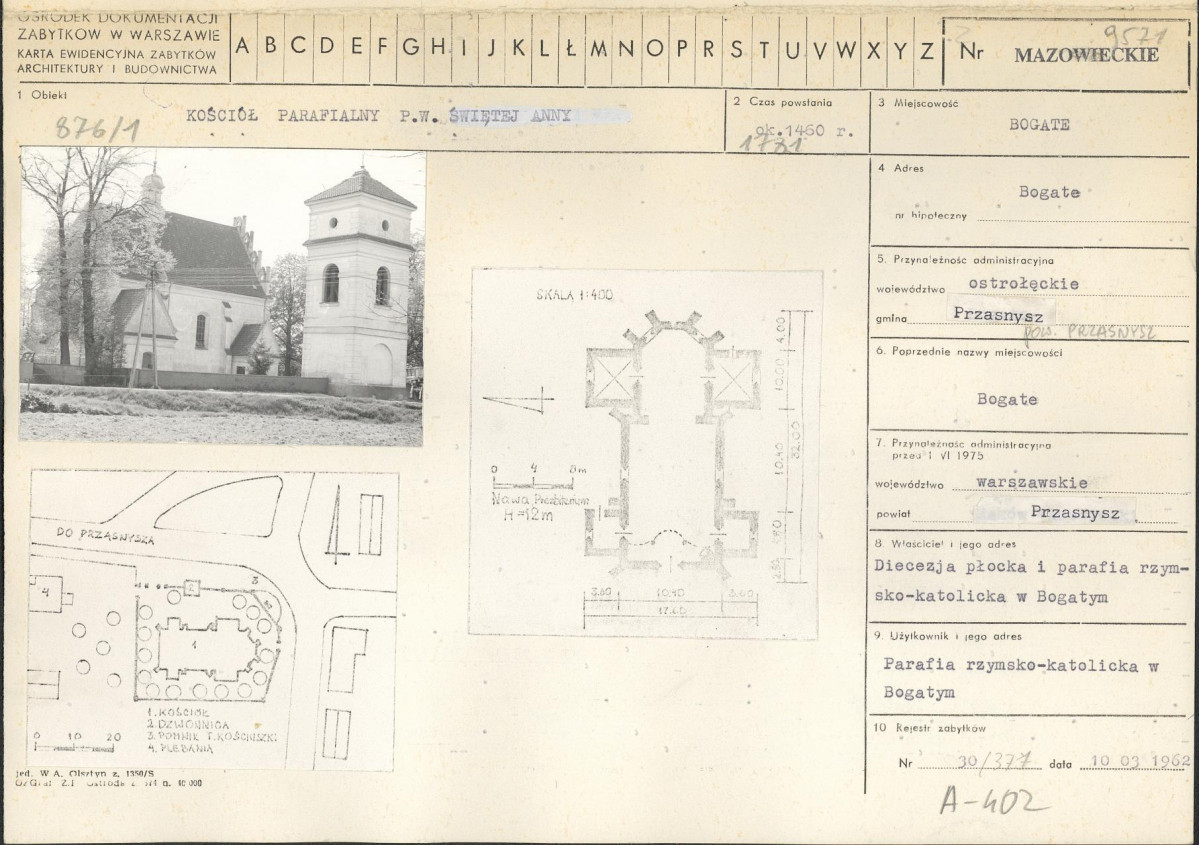 OŚRODEK DOKUMENTACJI
ZABYTKÓW W WARSZAWIE
KARTA EWIDENCYJNA ZABYTKÓW
ARCHITEKTURY I BUDOWNICTWA
A B C D E F G H I J K L Ł M N O P R S T U V W X Y Z
Nr MAZOWIECKIE
9571
1 Obiekt
876/1
KOŚCIÓŁ PARAFIALNY P.W. ŚWIĘTEJ ANNY
2 Czas powstania
ok.1460 r.
1731
3 Miejscowość
BOGATE
4 Adres
Bogate
nr hipoteczny
5. Przynależność administracyjna
województwo ostrołęckie
gmina Przasnysz
pow. PRZASNYSZ
6. Poprzednie nazwy miejscowości
Bogate
7. Przynależność administracyjna
przed 1 VI 1975
województwo warszawskie
powiat Przasnysz
8. Właściciel i jego adres
Diecezja płocka i parafia rzym-
sko-katolicka w Bogatym
9. Użytkownik i jego adres
Parafia rzymsko-katolicka w
Bogatym
10 Rejestr zabytków
Nr 30/377 data 10 03 1962
A-402
SKALA 1:400
0 4 8m
Nawa Prezbiterium
H=12m
4.00
10.00
10.40
32.00
7.80
2.50
3.60 10.40 3.60
17.60
DO PRZASNYSZA
1
2
3
4
1. KOŚCIÓŁ
2. DZWONNICA
3. POMNIK T. KOŚCIUSZKI
4. PLEBANIA
0 10 20
jed. W.A. Olsztyn z. 1350/S